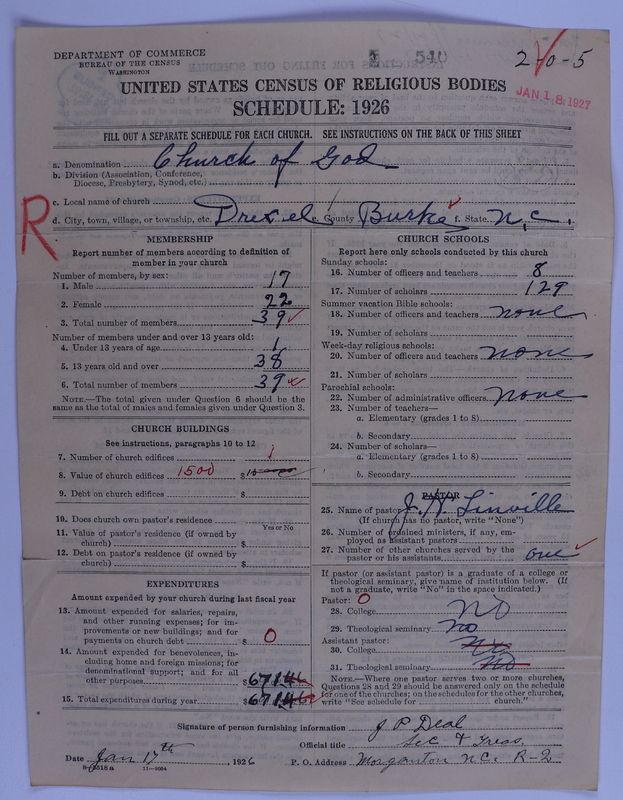 DEPARTMENT OF COMMERCE
BUREAU OF THE CENSUS
WASHINGTON
540
2-0-5
UNITED STATES CENSUS OF RELIGIOUS BODIES
JAN 18 1927
SCHEDULE: 1926
FILL OUT A SEPARATE SCHEDULE FOR EACH CHURCH. SEE INSTRUCTIONS ON THE BACK OF THIS SHEET
a. Denomination Church of God
b. Division (Association, Conference,
Diocese, Presbytery, Synod, etc.)
c. Local name of church
R
d. City, town, village, or township, etc. Drexel e. County Burke f. State N.C.
MEMBERSHIP
Report number of members according to definition of
member in your church
Number of members, by sex:
1. Male 17
2. Female 22
3. Total number of members 39
Number of members under and over 13 years old:
4. Under 13 years of age 1
5. 13 years old and over 38
6. Total number of members 39
NOTE.—The total given under Question 6 should be the
same as the total of males and females given under Question 3.
CHURCH BUILDINGS
See instructions, paragraphs 10 to 12
7. Number of church edifices 1
8. Value of church edifices 1500 $
9. Debt on church edifices $
10. Does church own pastor's residence
Yes or No
11. Value of pastor's residence (if owned by
church) $
12. Debt on pastor's residence (if owned by
church) $
EXPENDITURES
Amount expended by your church during last fiscal year
13. Amount expended for salaries, repairs,
and other running expenses; for im-
provements or new buildings; and for
payments on church debt $ 0
14. Amount expended for benevolences, in-
cluding home and foreign missions; for
denominational support; and for all
other purposes $ 671
15. Total expenditures during year $ 671
CHURCH SCHOOLS
Report here only schools conducted by this church
Sunday schools:
16. Number of officers and teachers 8
17. Number of scholars 129
Summer vacation Bible schools:
18. Number of officers and teachers none
19. Number of scholars
Week-day religious schools:
20. Number of officers and teachers none
21. Number of scholars
Parochial schools:
22. Number of administrative officers none
23. Number of teachers—
a. Elementary (grades 1 to 8)
b. Secondary
24. Number of scholars—
a. Elementary (grades 1 to 8)
b. Secondary
PASTOR
25. Name of pastor J. H. Linville
(If church has no pastor, write "None")
26. Number of ordained ministers, if any, em-
ployed as assistant pastors
27. Number of other churches served by the
pastor or his assistants one
If pastor (or assistant pastor) is a graduate of a college or
theological seminary, give name of institution below. (If
not a graduate, write "No" in the space indicated.)
Pastor: 0
28. College No
29. Theological seminary no
Assistant pastor:
30. College No
31. Theological seminary No
NOTE.—Where one pastor serves two or more churches,
Questions 28 and 29 should be answered only on the schedule
for one of the churches; on the schedules for the other churches,
write "See schedule for church."
Signature of person furnishing information J P Deal
Official title Sec & Treas
Date Jan 17th, 1926 P. O. Address Morganton N.C. R-2
8-6518 a 11-9064